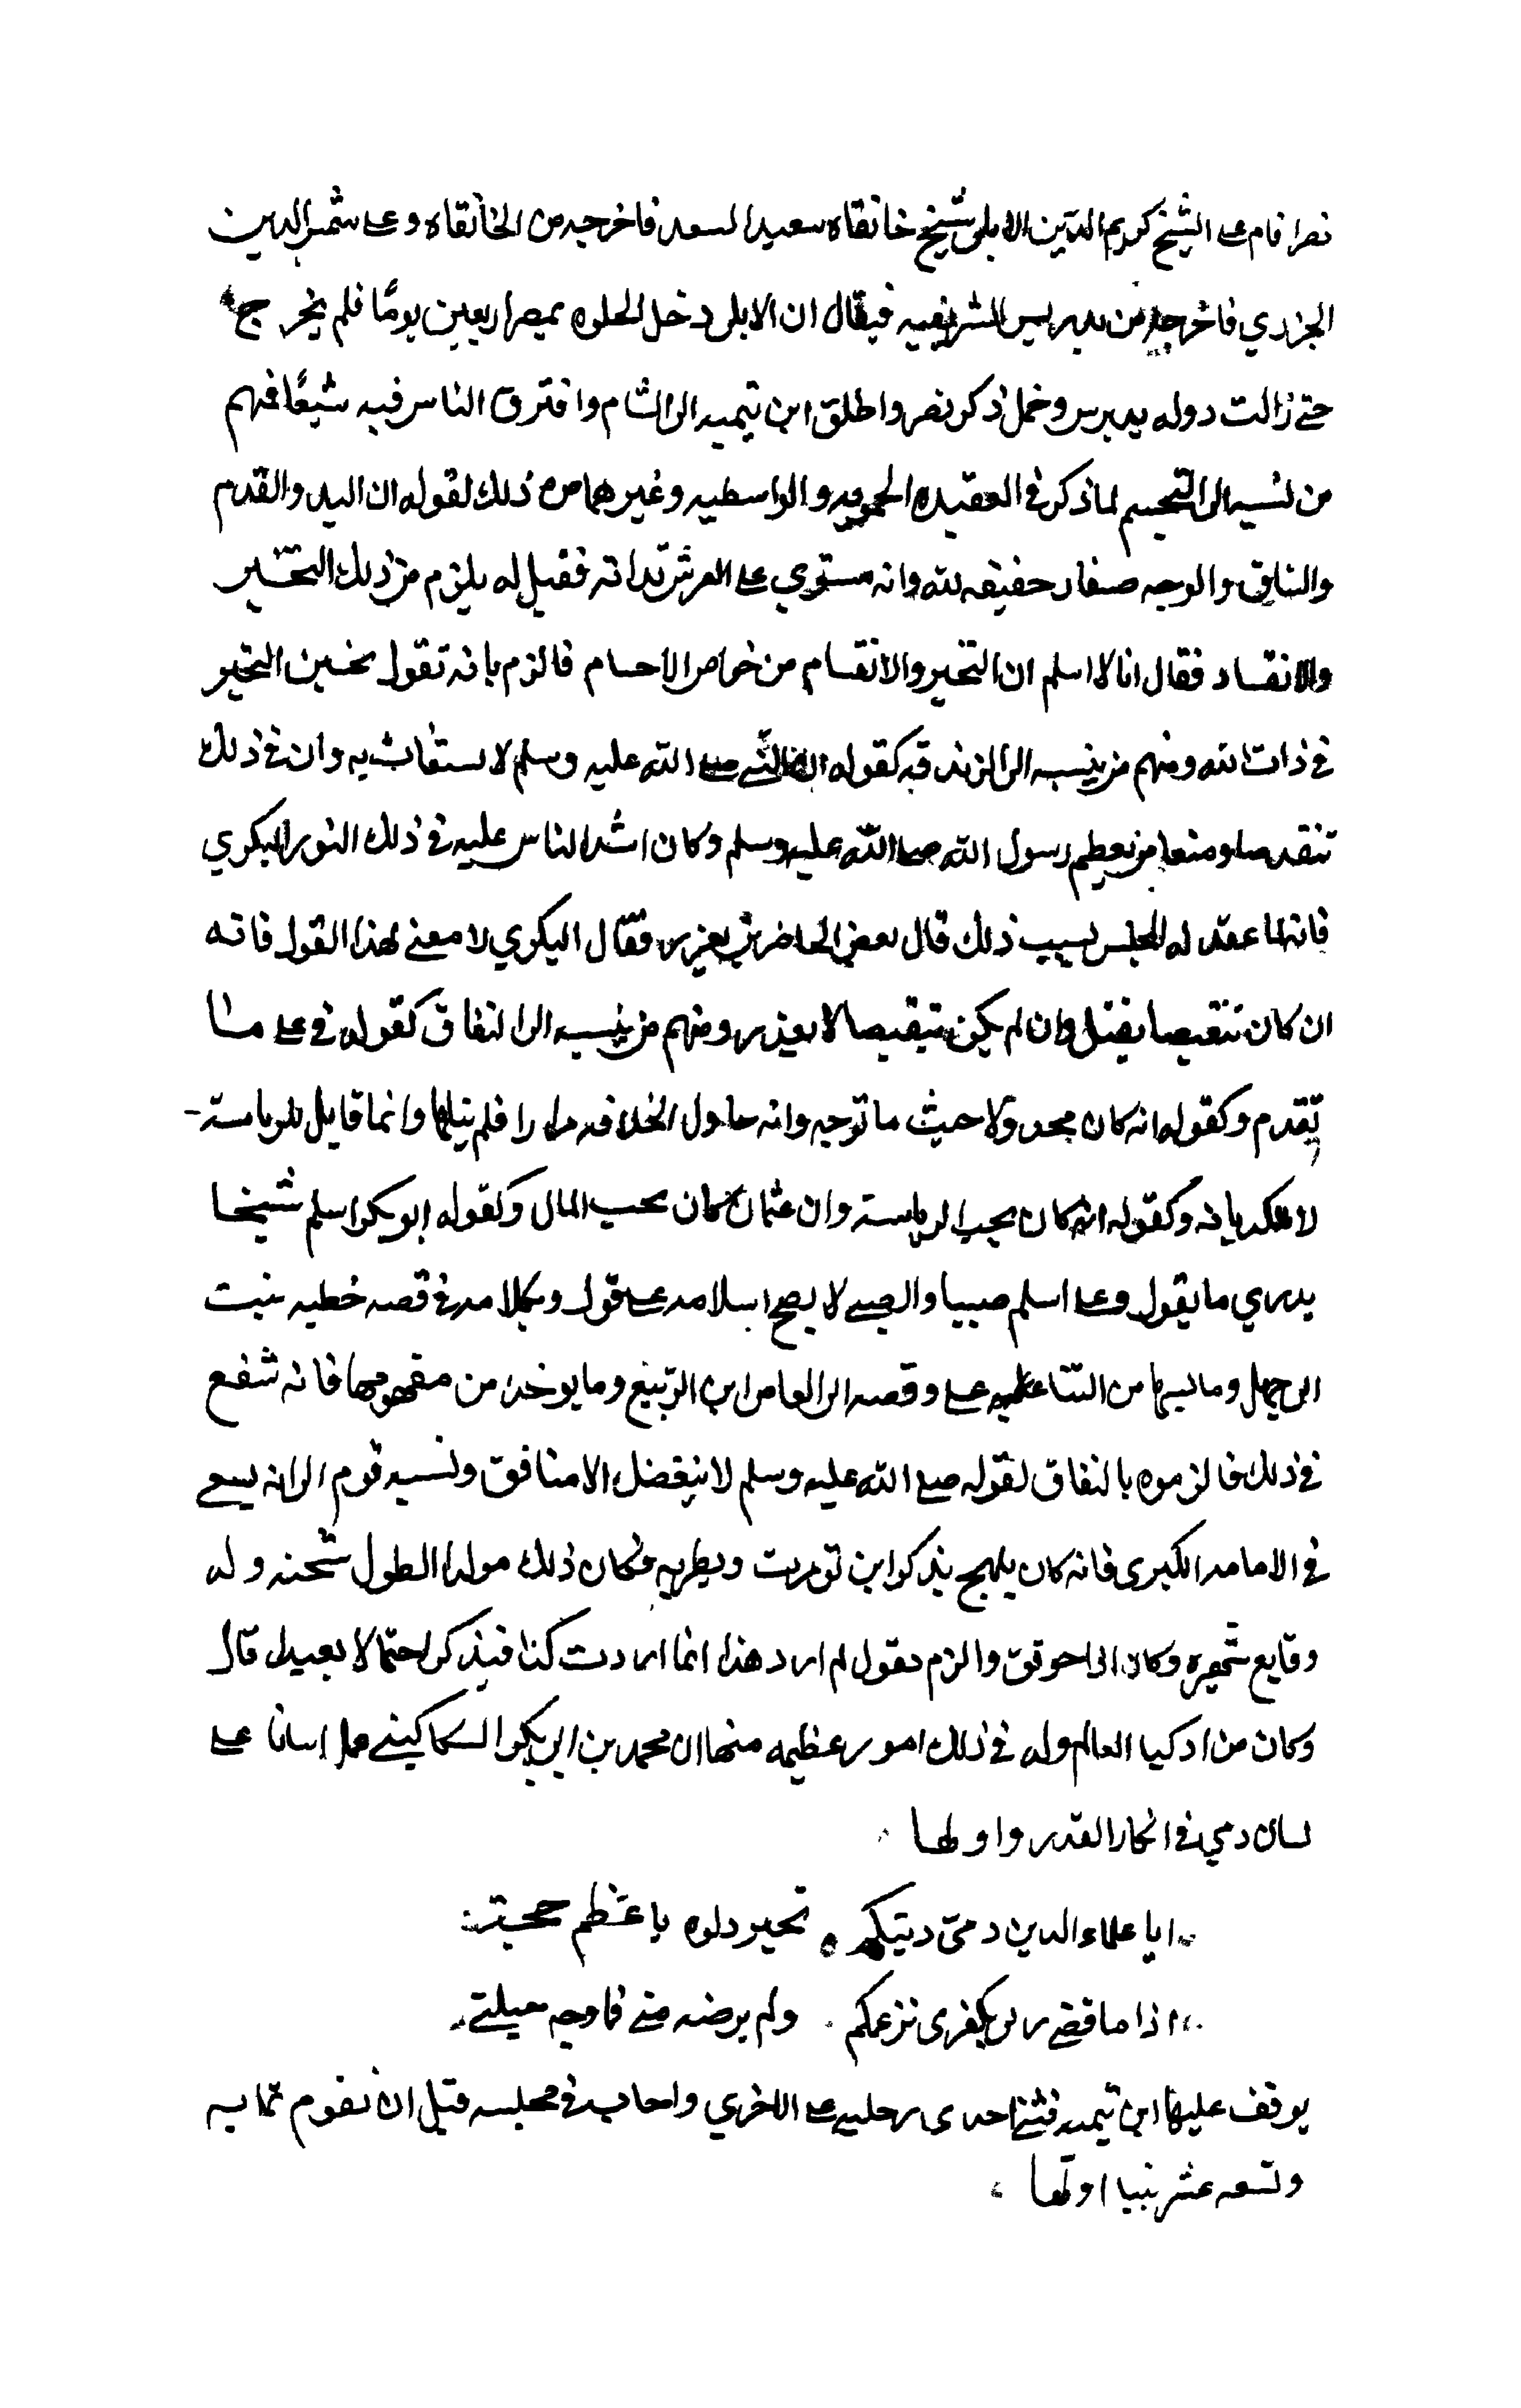 نصرا فقام على الشيخ كريم الدين الابلى شيخ خانقاه سعيد السعد فاخرجه من الخانقاه وعلى شمس الدين
الجزري فاخرجه من تدريس الشريفيه فيقال ان الابلى دخل الخلوه بمصر اربعين يومًا فلم يخرج
حتى زالت دوله بيبرس وخمل ذكر نصر واطلق ابن تيميه الى الشام وافترق الناس فيه شيعًا فمنهم
من نسبه الى التجسيم لما ذكر في العقيده الحمويه والواسطيه وغيرهما من ذلك لقوله ان اليد والقدم
والساق والوجه صفات حقيقه لله وانه مستوي على العرش بذاته فقيل له يلزم من ذلك التحيز
والانقسام فقال انا لا اسلم ان التحيز والانقسام من خواص الاجسام فالزم بانه تقول بتحيز
في ذات الله ومنهم من ينسبه الى الزندقه كقوله ان النبى صلى الله عليه وسلم لا يستغاث به وان في ذلك
تنقيصا ومنعا من تعظيم رسول الله صلى الله عليه وسلم وكان اشد الناس عليه في ذلك النور البكري
فانه لما عقد له المجلس بسبب ذلك قال بعض الحاضرين يعزر فقال البكري لا معنى لهذا القول فانه
ان كان تنقيصا يقتل وان لم يكن تنقيصا لا يعزر ومنهم من ينسبه الى النفاق كقوله في على ما
تقدم وكقوله انه كان مخذولا حيث ما توجه وانه حاول الخلافه مرارا فلم ينلها وانما قاتل للرياسه
لا للديانه وكقوله انه كان يحب الرياسه وان عثمان كان يحب المال وكقوله ابو بكر اسلم شيخا
يدري ما يقول وعلى اسلم صبيا والصبى لا يصح اسلامه على قول وبكلامه في قصه خطبه بنت
ابى جهل وما نسبها من الثنا على وقصه ابى العاص ابن الربيع وما يوخذ من مفهومها فانه شنع
في ذلك فالزموه بالنفاق لقوله صلى الله عليه وسلم لا يبغضك الا منافق ونسبه قوم الى انه يسعى
في الامامه الكبرى فانه كان يلهج بذكر ابن تومرت ويطريه فكان ذلك مولدا لطول سجنه وله
وقايع شهيره وكان اذا حوقق والزم يقول لم ارد هذا انما اردت كذا فيذكر احتمالا بعيدا قال
وكان من اذكيا العالم وله في ذلك امور عظيمه منها ان محمد بن ابى بكر السكاكينى عمل ابياتا على
لسان ذمي في انكار القدر واولها
ايا علماء الدين ذمىّ دينكم تحير دلوه باعظم حجة
اذا ما قضى ربى بكفرى بزعمكم ولم يرضه منى فما وجه حيلتى
فوقف عليها ابن تيميه فثنى احدى رجليه على الاخري واجاب في مجلسه قبل ان يقوم بمايه
وتسعه عشر بيتا اولها